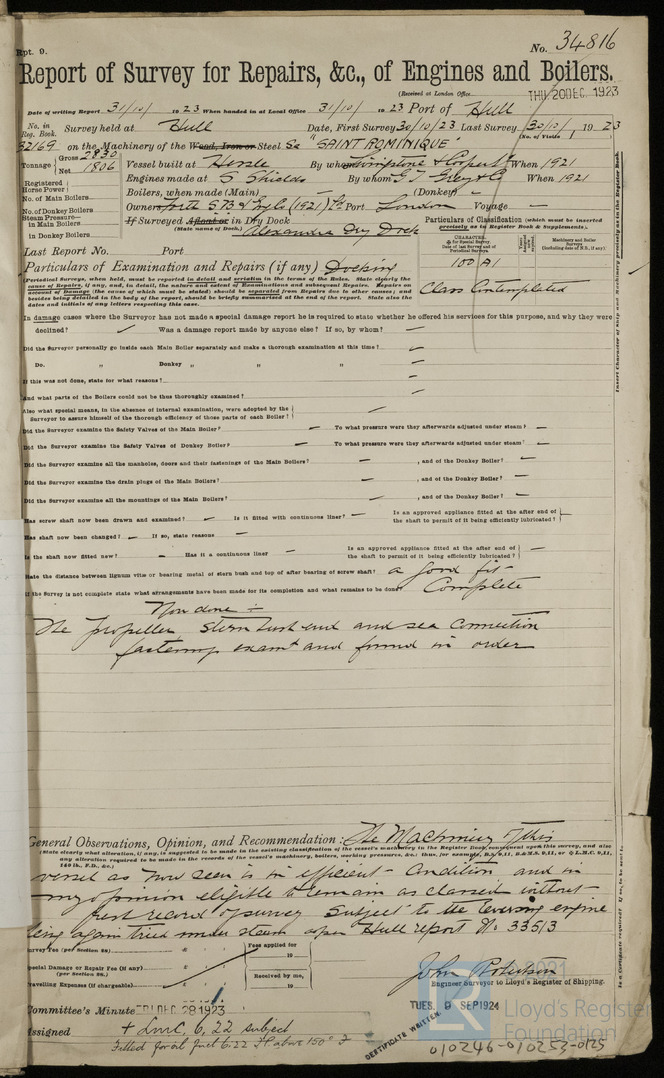 Rpt. 9.
No. 34816
Report of Survey for Repairs, &c., of Engines and Boilers.
(Received at London Office THU 20 DEC. 1923
Date of writing Report 31/10/ 1923 When handed in at Local Office 31/10/ 1923 Port of Hull
No. in Reg. Book. Survey held at Hull Date, First Survey 30/10/23 Last Survey 30/10/ 1923
(No. of Visits )
32169 on the Machinery of the Wood, Iron or Steel "SAINT DOMINIQUE"
Tonnage Gross 2830 Net 1806
Vessel built at Hessle By whom When 1921
Engines made at S Shields By whom G T Grey & Co When 1921
Registered Horse Power
Boilers, when made (Main) — (Donkey) —
No. of Main Boilers
Owners (1921) Port London Voyage —
No. of Donkey Boilers
Steam Pressure— in Main Boilers
in Donkey Boilers
If Surveyed Afloat or in Dry Dock
(State name of Dock.) Alexandra Dry Dock
Particulars of Classification (which must be inserted precisely as in Register Book & Supplements).
Last Report No. Port
Particulars of Examination and Repairs (if any) Docking
100 A1
Class Contemplated
(Periodical Surveys, when held, must be reported in detail and seriatim in the terms of the Rules. State clearly the causes of Repairs, if any, and, in detail, the nature and extent of Examinations and subsequent Repairs. Repairs on account of Damage (the cause of which must be stated) should be separated from Repairs due to other causes; and besides being detailed in the body of the report, should be briefly summarised at the end of the report. State also the dates and initials of any letters respecting this case.
In damage cases where the Surveyor has not made a special damage report he is required to state whether he offered his services for this purpose, and why they were
declined? Was a damage report made by anyone else? If so, by whom? —
Did the Surveyor personally go inside each Main Boiler separately and make a thorough examination at this time? —
Do. „ Donkey „ „ „ —
If this was not done, state for what reasons? —
And what parts of the Boilers could not be thoroughly examined? —
Also what special means, in the absence of internal examination, were adopted by the Surveyor to assure himself of the thorough efficiency of those parts of each Boiler? —
Did the Surveyor examine the Safety Valves of the Main Boiler? — To what pressure were they afterwards adjusted under steam? —
Did the Surveyor examine the Safety Valves of Donkey Boiler? — To what pressure were they afterwards adjusted under steam? —
Did the Surveyor examine all the manholes, doors and their fastenings of the Main Boilers? — , and of the Donkey Boiler? —
Did the Surveyor examine the drain pings of the Main Boilers? — , and of the Donkey Boiler? —
Did the Surveyor examine all the mountings of the Main Boilers? — , and of the Donkey Boiler? —
Has screw shaft now been drawn and examined? — Is it fitted with continuous liner? — Is an approved appliance fitted at the after end of the shaft to permit of it being efficiently lubricated? —
Has shaft now been changed? — If so, state reasons —
Is the shaft now fitted new? — Has it a continuous liner — Is an approved appliance fitted at after end of shaft to permit of it being efficiently lubricated? —
State the distance between lignum vitæ or bearing metal of stern bush and top of after bearing of screw shaft? a good fit
If the Survey is not complete state what arrangements have been made for its completion and what remains to be done? Complete
Now done :—
The propeller stern bush end and sea connection
fastenings examd and found in order
General Observations, Opinion, and Recommendation: The Machinery of this
(State clearly what alteration, if any, is suggested to be made in the existing classification of the vessel's machinery to the Register Book, consequent upon this survey, and also any alteration required to be made in the records of the vessel's machinery, boilers, working pressures, &c.:
vessel as now seen is in efficient condition and in
my opinion eligible to remain as classed without
fresh record of survey subject to the reversing engine
being again tried under steam upon Hull report No 33513
Survey Fee (per Section 28)
Fees applied for
19
Special Damage or Repair Fee (if any)
(per Section 28.)
Received by me,
Travelling Expenses (if chargeable)
19
John Robertson
Engineer Surveyor to Lloyd's Register of Shipping.
Committee's Minute FRI DEC. 28 1923
TUES. 9 SEP 1924
Assigned + LMC 6,22 subject
Fitted for oil fuel 6.22 F.P. above 150° F
CERTIFICATE WRITTEN.
010246-010253-0125
Insert Character of Ship and Machinery precisely as in the Register Book.
© 2021
Lloyd's Register
Foundation